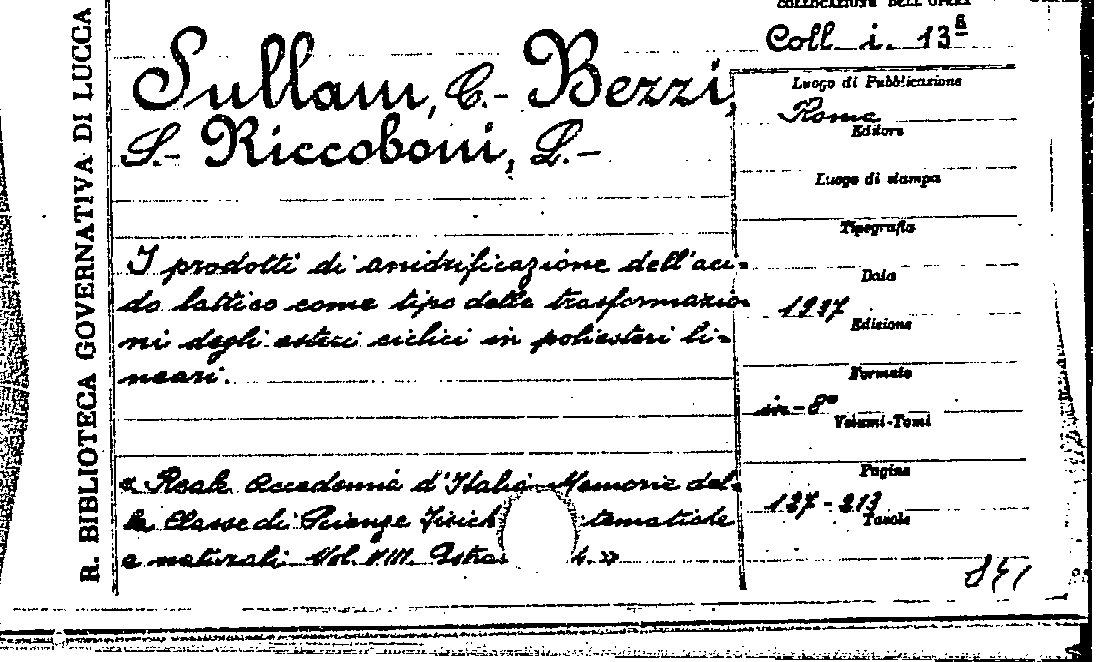 R. BIBLIOTECA GOVERNATIVA DI LUCCA
COLLOCAZIONE DELL'OPERA
Coll. i. 13ª
Sullam, C.- Bezzi,
S.- Riccoboni, L.-
I prodotti di anidrificazione dell'aci-
do lattico come tipo delle trasformazio-
ni degli esteri ciclici in poliesteri li-
neari.
« Reale Accademia d'Italia Memorie del-
la Classe di Scienze Fisich tematiche
e naturali Vol. VIII. Estra 4. »
Luogo di Pubblicazione
Roma
Editore
Luogo di stampa
Tipografia
Data
1937
Edizione
Formato
in-8°
Volumi-Tomi
Pagine
127-213
Tavole